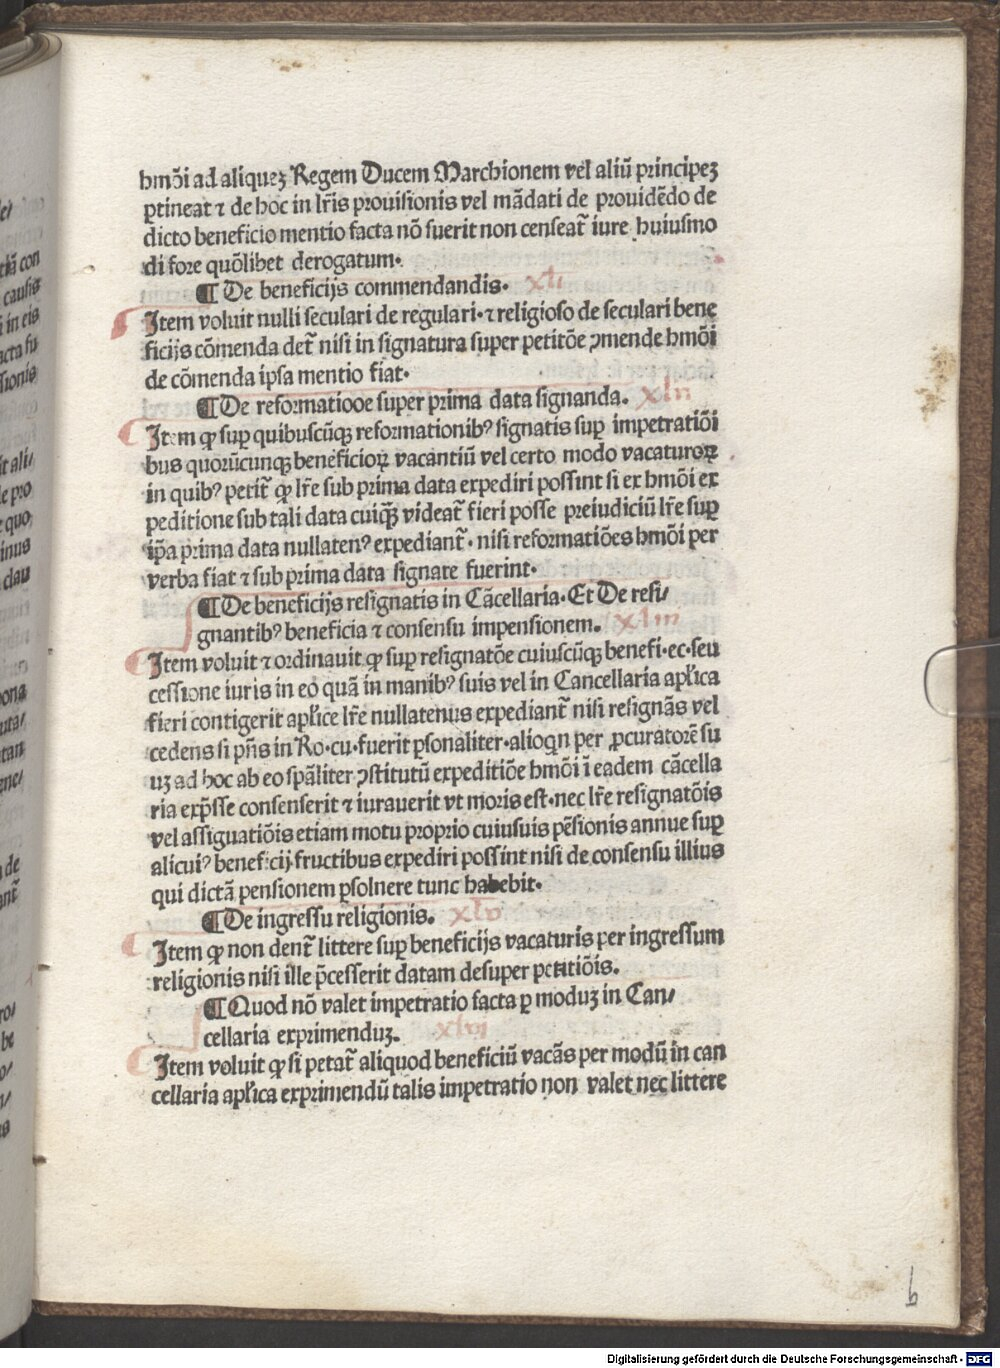 hmõi ad aliquez Regem Ducem Marchionem vel aliũ principez
ꝑtineat ⁊ de hoc in lr̃is prouisionis vel mãdati de prouidẽdo de
dicto beneficio mentio facta nõ fuerit non censeat᷑ iure huiusmo
di fore quõlibet derogatum.
¶ De beneficijs commendandis. xli
Item voluit nulli seculari de regulari. ⁊ religioso de seculari bene
ficijs cõmenda det᷑ nisi in signatura super petitõe ꝯmende hmõi
de cõmenda ipsa mentio fiat.
¶ De reformatiooe super prima data signanda. xlii
Item ꝙ suꝑ quibuscũqꝫ reformationibꝰ signatis suꝑ impetratiõi
bus quorũcunqꝫ beneficioꝝ vacantiũ vel certo modo vacaturoꝝ
in quibꝰ petit᷑ ꝙ lr̃e sub prima data expediri possint si ex hmõi ex
peditione sub tali data cuiqꝫ̃ videat᷑ fieri posse preiudiciũ lr̃e suꝑ
ip̃a prima data nullatenꝰ expediant᷑. nisi reformatiões hmõi per
verba fiat ⁊ sub prima data signate fuerint.
¶ De beneficijs resignatis in Cãcellaria. Et De resi/
gnantibꝰ beneficia ⁊ consensu impensionem. xliii
Item voluit ⁊ ordinauit ꝙ suꝑ resignatõe cuiuscũqꝫ benefi. ec. seu
cessione iuris in eo quã in manibꝰ suis vel in Cancellaria apl̃ica
fieri contigerit apl̃ice lr̃e nullatenus expediant᷑ nisi resignãs vel
cedens si pñs in Ro. cu. fuerit ꝑsonaliter. alioqn per ꝓcuratorẽ su
uz ad hoc ab eo spãliter ꝯstitutũ expeditiõe hmõi ĩ eadem cãcella
ria exp̃sse consenserit ⁊ iurauerit vt moris est. nec lr̃e resignatõis
vel assiguatiõis etiam motu proprio cuiusuis pẽsionis annue suꝑ
alicuiꝰ beneficij fructibus expediri possint nisi de consensu illius
qui dictã pensionem ꝑsolnere tunc habebit.
¶ De ingressu religionis. xlv
Item ꝙ non dent᷑ littere suꝑ beneficijs vacaturis per ingressum
religionis nisi ille p̃cesserit datam desuper petitiõis.
¶ Quod nõ valet impetratio facta ꝑ moduz in Can/
cellaria exprimenduz. xlvi
Item voluit ꝙ si petat᷑ aliquod beneficiũ vacãs per modũ in can
cellaria apl̃ica exprimendũ talis impetratio non valet nec littere
b
Digitalisierung gefördert durch die Deutsche Forschungsgemeinschaft - DFG